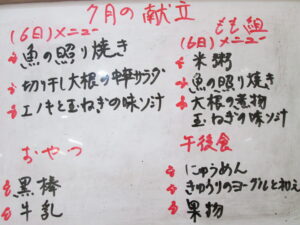 7月の献立
(6日)メニュー
魚の照り焼き
切り干し大根の中華サラダ
エノキと玉ねぎの味ソ汁
おやつ
黒棒
牛乳
もも組
(6日)メニュー
米粥
魚の照り焼き
大根の煮物
玉ねぎの味ソ汁
午後食
にゅうめん
きゅうりのヨーグルト和え
果物